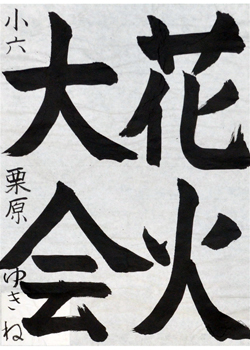 花火
大会
小六 栗原 ゆきね